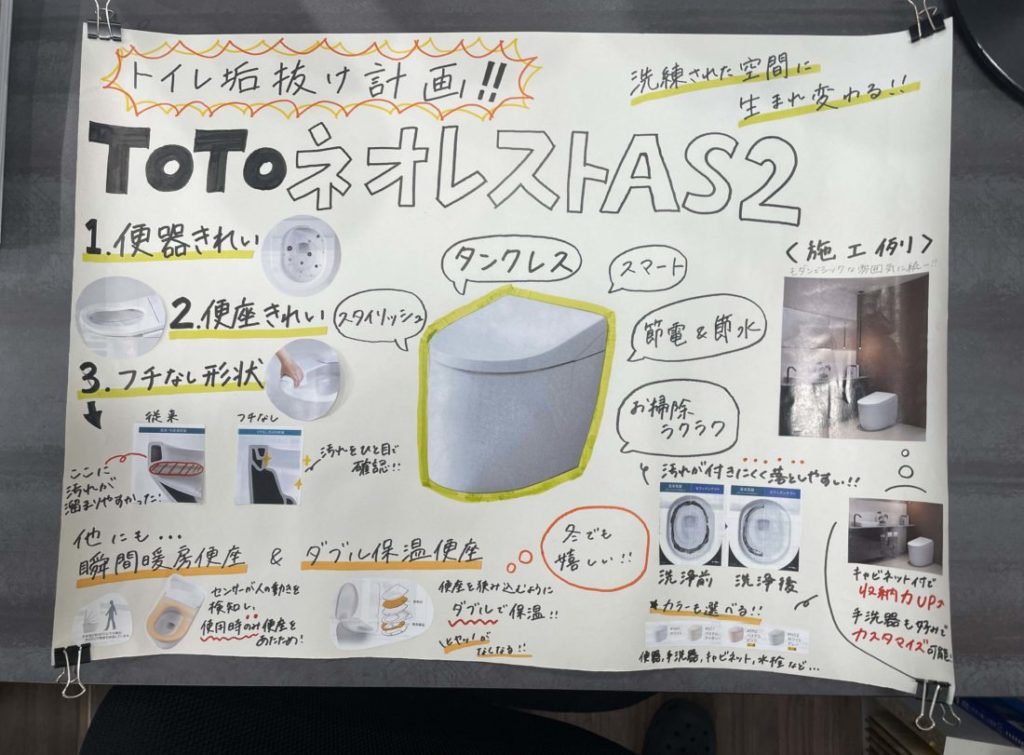 トイレ垢抜け計画!!
洗練された空間に
生まれ変わる!!
TOTOネオレストAS2
1.便器きれい
2.便座きれい
3.フチなし形状
従来
フチなし
ここに
汚れが
溜まりやすかった!
汚れをひと目で
確認!!
タンクレス
スマート
スタイリッシュ
節電&節水
お掃除
ラクラク
<施工例>
モダンシックな雰囲気に統一!!
汚れが付きにくく落としやすい!!
洗浄前
洗浄後
他にも…
瞬間暖房便座 & ダブル保温便座
冬でも
嬉しい!!
センサーが人の動きを
検知し、
使用時のみ便座を
あたため!
便座を挟み込むように
ダブルで保温!!
ヒヤッ!が
なくなる!!
★カラーも選べる!!
便器、手洗器、キャビネット、水栓など…
キャビネット付で
収納力UP↑
手洗器もお好みで
カスタマイズ可能!